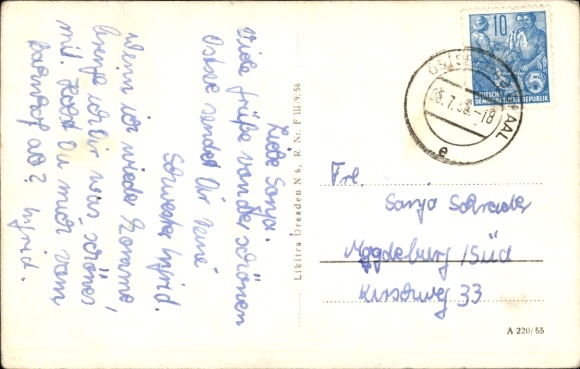 Liebe Sonja.
Viele Grüße von der schönen
Ostsee sendet Dir Deine
Schwester Ingrid.
Wenn ich wieder komme,
bringe ich Dir was schönes
mit. Holst Du mich vom
Bahnhof ab? Ingrid.
Likitra Dresden N 6, R. Nr. F III 9/56
10
5
DEUTSCHE
DEMOKRATISCHE REPUBLIK
OSTSEEBAD
05.7. -18
e
Frl.
Sonja Schrader
Magdeburg/Süd
Kirschweg 33
A 220/55